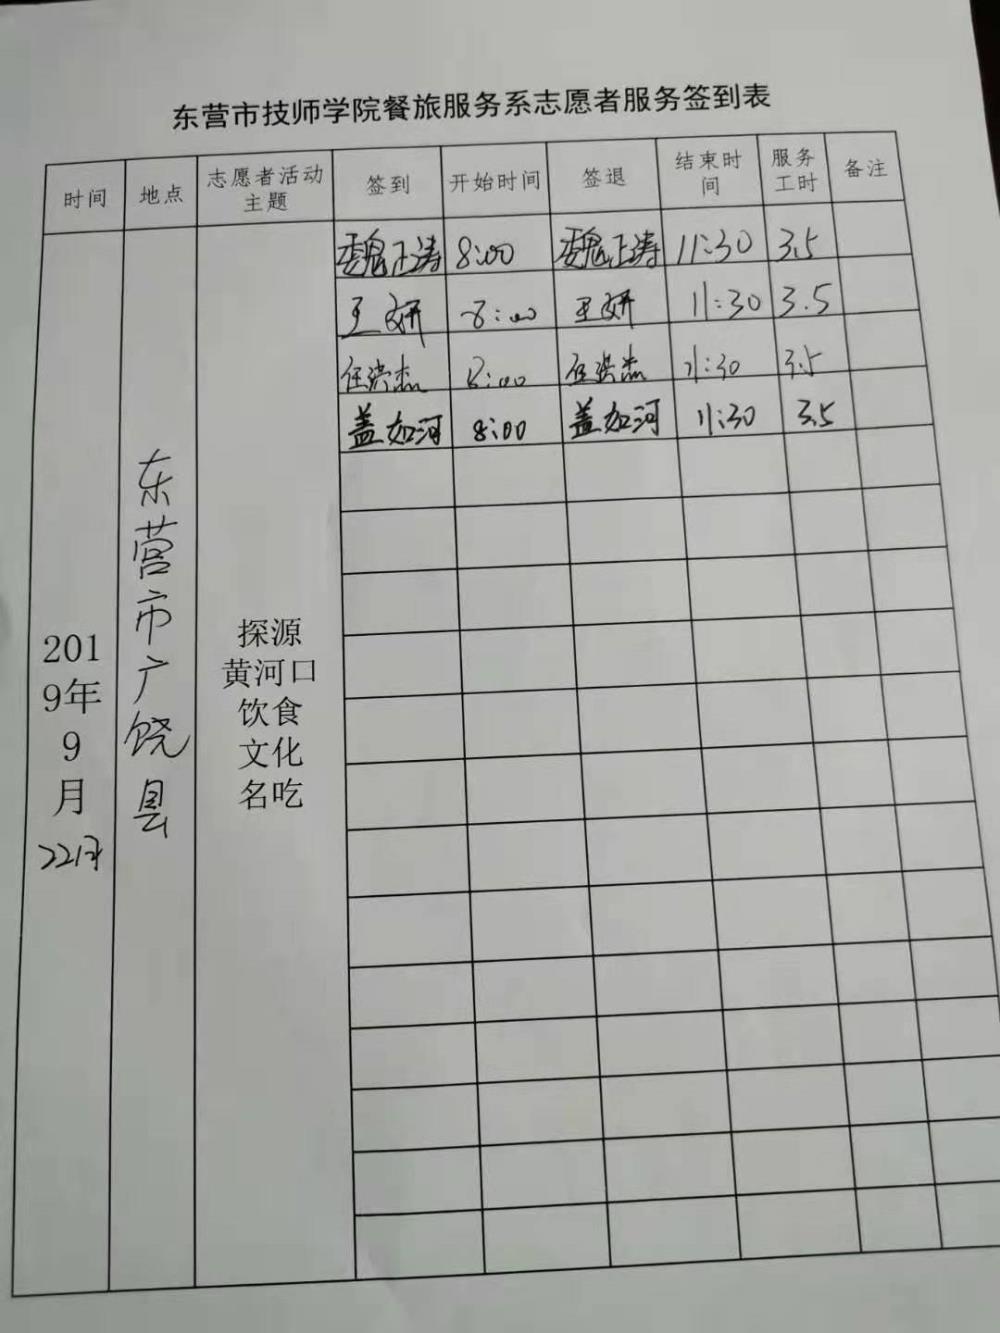 东营市技师学院餐旅服务系志愿者服务签到表
时间 地点 志愿者活动主题 签到 开始时间 签退 结束时间 服务工时 备注
魏正涛 8:00 魏正涛 11:30 3.5
王妍 8:00 王妍 11:30 3.5
任洪杰 8:00 任洪杰 11:30 3.5
盖如河 8:00 盖如河 11:30 3.5
2019年9月22日
东营市广饶县
探源
黄河口
饮食
文化
名吃